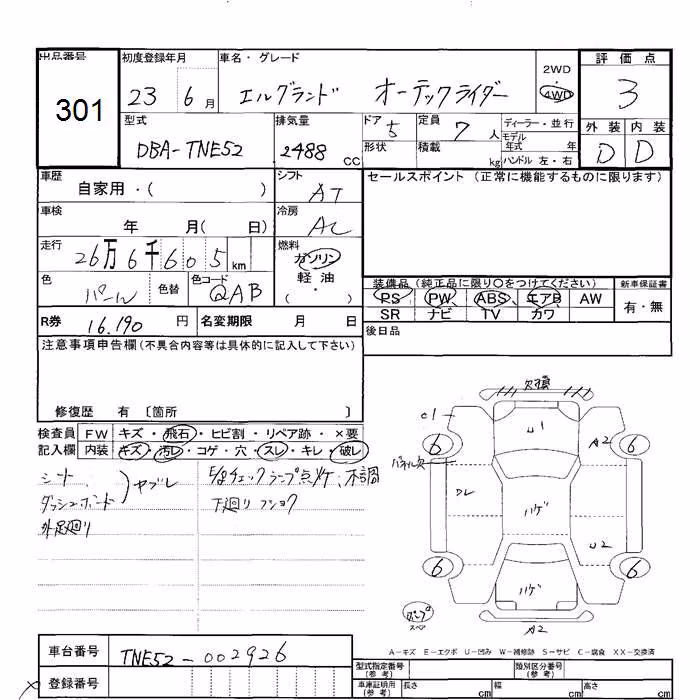 出品番号
301
初度登録年月
23 6 月
車名・グレード
エルグランド オーテックライダー
2WD
・
4WD
評価点
3
外装 内装
D D
型式
DBA-TNE52
排気量
2488 CC
ドア 5
形状
定員 7 人
積載 kg
ディーラー・並行
モデル
年式 年
ハンドル 左・右
車歴
自家用・( )
シフト
AT
車検
年 月( 日)
冷房
AC
走行
26万6千605 km
燃料
ガソリン
・
軽油
・
( )
色
パール
色替
色コード
QAB
セールスポイント (正常に機能するものに限ります)
装備品 (純正品に限り○をつけてください)
PS PW ABS エアB AW
SR ナビ TV カワ
新車保証書
有・無
R券 16,190 円
名変期限 月 日
後日品
注意事項申告欄(不具合内容等は具体的に記入して下さい)
修復歴 有 〔箇所 〕
検査員
記入欄
FW キズ・飛石・ヒビ割・リペア跡・×要
内装 キズ・汚レ・コゲ・穴・スレ・キレ・破レ
シート
ダッシュボード
ヤブレ
外足廻り
E/gチェックランプ点灯、不調
下廻りフショク
欠損
C1
U1
A2
6
6
パネル欠
ハゲ
U2
6
6
ハゲ
スペア
A2
A-キズ E-エクボ U-凹み W-補修跡 S-サビ C-腐食 XX-交換済
車台番号
TNE52-002926
登録番号
型式指定番号
(参考)
類別区分番号
(参考)
車庫証明用
(参考)
長さ cm
幅 cm
高さ cm